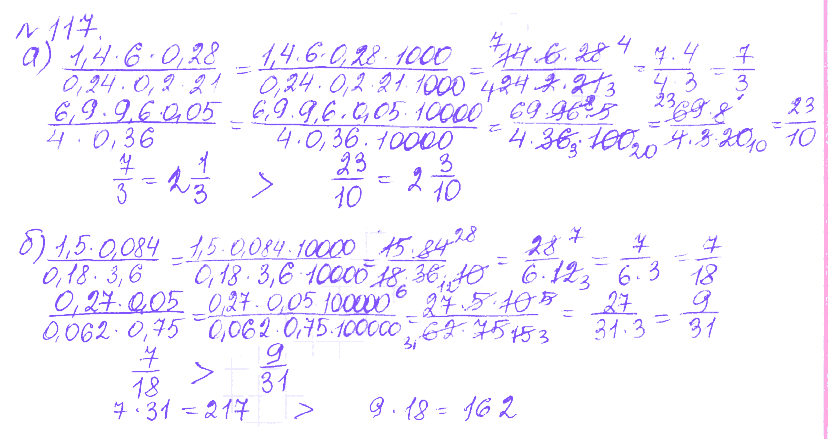 № 117.
а) (1,4 · 6 · 0,28)/(0,24 · 0,2 · 21) = (1,4 · 6 · 0,28 · 1000)/(0,24 · 0,2 · 21 · 1000) = (7 14 · 6 · 28 4)/(4 24 · 2 · 21 3) = (7 · 4)/(4 · 3) = 7/3
(6,9 · 9,6 · 0,05)/(4 · 0,36) = (6,9 · 9,6 · 0,05 · 10000)/(4 · 0,36 · 10000) = (69 · 96 · 5)/(4 · 36 3 · 100 20) = (23 69 · 8)/(4 · 3 · 20 10) = 23/10
7/3 = 2 1/3 > 23/10 = 2 3/10
б) (1,5 · 0,084)/(0,18 · 3,6) = (1,5 · 0,084 · 10000)/(0,18 · 3,6 · 10000) = (15 · 84 28)/(18 · 36 12 · 10) = (28 7)/(6 · 12 3) = 7/(6 · 3) = 7/18
(0,27 · 0,05)/(0,062 · 0,75) = (0,27 · 0,05 · 100000)/(0,062 · 0,75 · 100000) = (27 · 5 · 10 5)/(31 62 · 75 15 3) = 27/(31 · 3) = 9/31
7/18 > 9/31
7 · 31 = 217 > 9 · 18 = 162